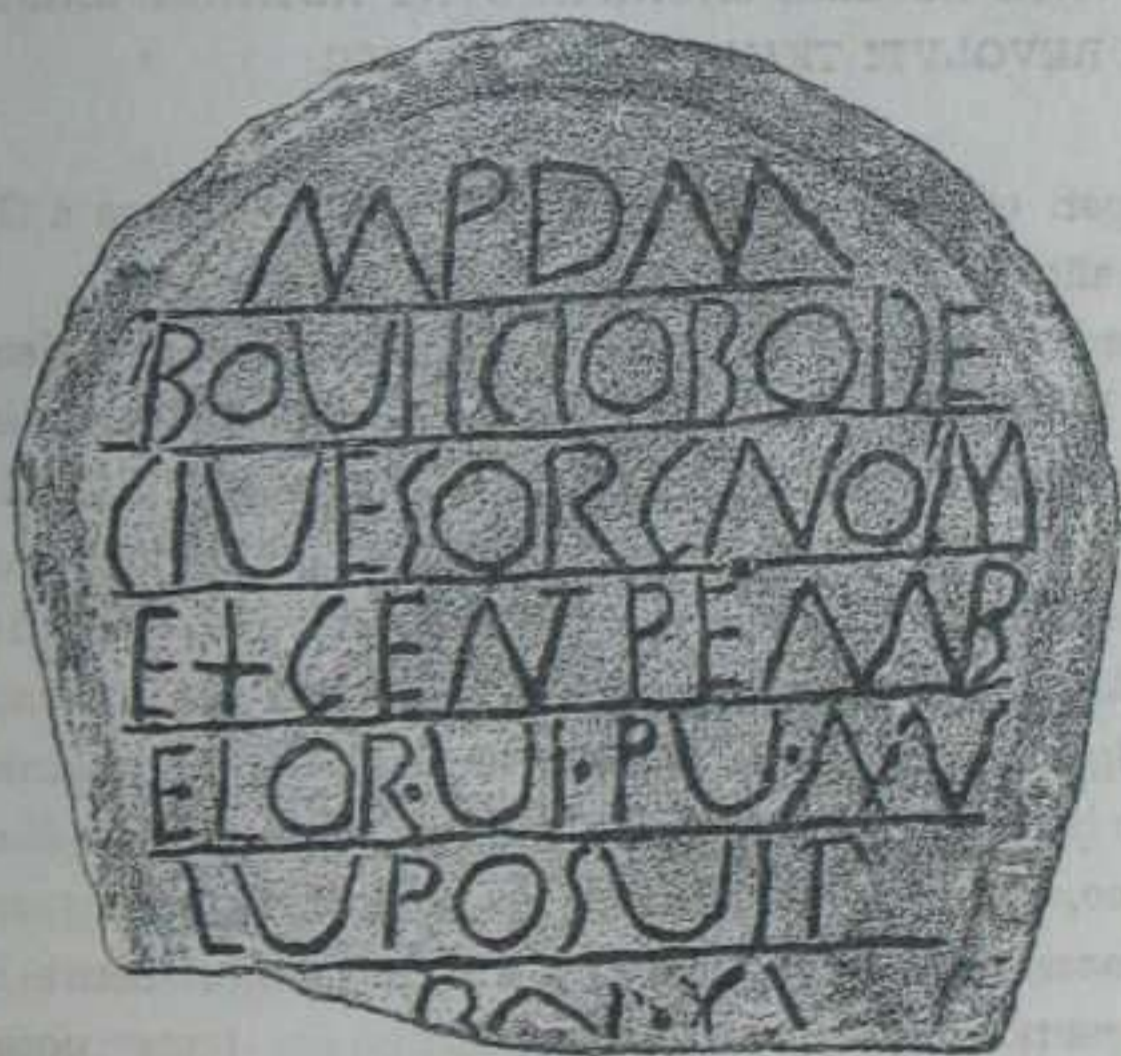 MPDM
BOUIICIOBODE
CIUESORCNOM
E+CENT PEMB
ELOR·UI·PU·AN
LUPOSUIT